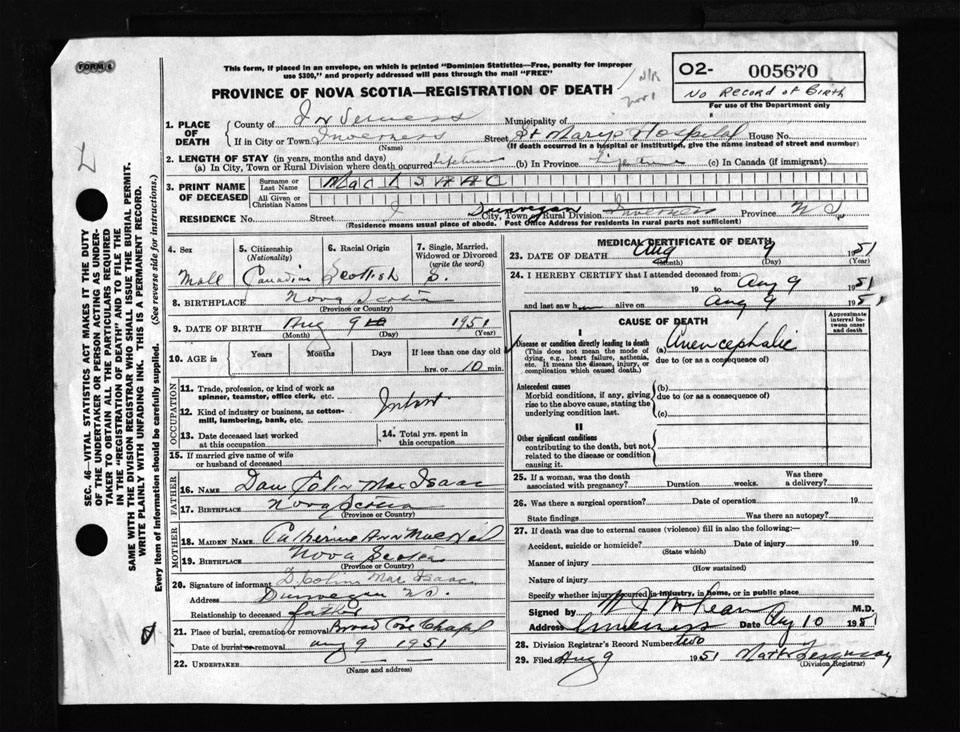 FORM 6
This form, if placed in an envelope, on which is printed "Dominion Statistics—Free, penalty for improper
use $300," and properly addressed will pass through the mail "FREE"
PROVINCE OF NOVA SCOTIA—REGISTRATION OF DEATH
N/R
Nov 1
02- 005670
No Record of Birth
For use of the Department only
1. PLACE OF DEATH
County of Inverness Municipality of
If in City or Town Inverness Street St Mary's Hospital House No.
(Name) (If death occurred in a hospital or institution, give the name instead of street and number)
2. LENGTH OF STAY (in years, months and days)
(a) In City, Town or Rural Division where death occurred lifetime (b) In Province lifetime (c) In Canada (if immigrant)
3. PRINT NAME OF DECEASED
Surname or Last Name MacISAAC
All Given or Christian Names
RESIDENCE No. Street Dunvegan City, Town or Rural Division Inverness Province NS
(Residence means usual place of abode. Post Office Address for residents in rural parts not sufficient)
4. Sex
Male
5. Citizenship (Nationality)
Canadian
6. Racial Origin
Scottish
7. Single, Married, Widowed or Divorced (write the word)
S.
8. BIRTHPLACE Nova Scotia
(Province or Country)
9. DATE OF BIRTH Aug 9 1951
(Month) (Day) (Year)
10. AGE in Years Months Days If less than one day old
hrs. or 10 min.
OCCUPATION
11. Trade, profession, or kind of work as spinner, teamster, office clerk, etc.
12. Kind of industry or business, as cotton-mill, lumbering, bank, etc.
Infant
13. Date deceased last worked at this occupation
14. Total yrs. spent in this occupation
15. If married give name of wife or husband of deceased
FATHER
16. NAME Dan Colin MacIsaac
17. BIRTHPLACE Nova Scotia
(Province or Country)
MOTHER
18. MAIDEN NAME Catherine Ann MacNeil
19. BIRTHPLACE Nova Scotia
(Province or Country)
20. Signature of informant D. Colin MacIsaac
Address Dunvegan NS.
Relationship to deceased father
21. Place of burial, cremation or removal Broad Cove Chapel
Date of burial or removal Aug 9 1951
22. UNDERTAKER
(Name and address)
MEDICAL CERTIFICATE OF DEATH
23. DATE OF DEATH Aug 9 1951
(Month) (Day) (Year)
24. I HEREBY CERTIFY that I attended deceased from:
19 to Aug 9 1951
and last saw h alive on Aug 9 1951
CAUSE OF DEATH
Approximate interval between onset and death
I
Disease or condition directly leading to death
(This does not mean the mode of dying, e.g., heart failure, asthenia, etc. It means the disease, injury, or complication which caused death.)
(a) Anencephalic
due to (or as a consequence of)
Antecedent causes
Morbid conditions, if any, giving rise to the above cause, stating the underlying condition last.
(b)
due to (or as a consequence of)
(c)
II
Other significant conditions
contributing to the death, but not related to the disease or condition causing it.
25. If a woman, was the death associated with pregnancy? Duration weeks. Was there a delivery?
26. Was there a surgical operation? Date of operation 19
State findings Was there an autopsy?
27. If death was due to external causes (violence) fill in also the following:—
Accident, suicide or homicide? Date of injury 19
(State which)
Manner of injury
(How sustained)
Nature of injury
Specify whether injury occurred in industry, in home, or in public place
Signed by M.D.
Address Inverness Date Aug 10 1951
28. Division Registrar's Record Number two
29. Filed Aug 9 1951
(Division Registrar)
SEC. 46—VITAL STATISTICS ACT MAKES IT THE DUTY
OF THE UNDERTAKER OR PERSON ACTING AS UNDER-
TAKER TO OBTAIN ALL THE PARTICULARS REQUIRED
IN THE "REGISTRATION OF DEATH" AND TO FILE THE
SAME WITH THE DIVISION REGISTRAR WHO SHALL ISSUE THE BURIAL PERMIT.
WRITE PLAINLY WITH UNFADING INK. THIS IS A PERMANENT RECORD.
Every item of information should be carefully supplied. (See reverse side for instructions.)